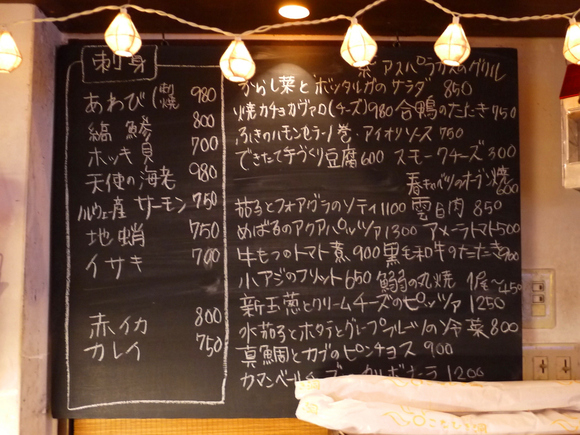 刺身
あわび(刺 焼 980
縞鯵 800
ホッキ貝 700
天使の海老 980
ノルウェー産 サーモン 750
地蛸 750
イサキ 700
赤イカ 800
カレイ 750
アスパラガスのグリル
からし菜とボッタルガのサラダ 850
焼カチョカヴァロ(チーズ)980 合鴨のたたき750
ふきのハモンセラーノ巻・アイオリソース 750
できたて手づくり豆腐600 スモークチーズ 300
春キャベツのオーブン焼 600
茄子とフォアグラのソティ1100 雲白肉 850
めばるのアクアパッツァ1300 アメーラトマト500
牛もつのトマト煮 900 黒毛和牛のたたき900
小アジのフリット650 鰯の丸焼 1尾〜450
新玉葱とクリームチーズのピッツァ 1250
水茄子とホタテとグレープフルーツの冷菜800
真鯛とカブのピンチョス 900
カマンベール 1200